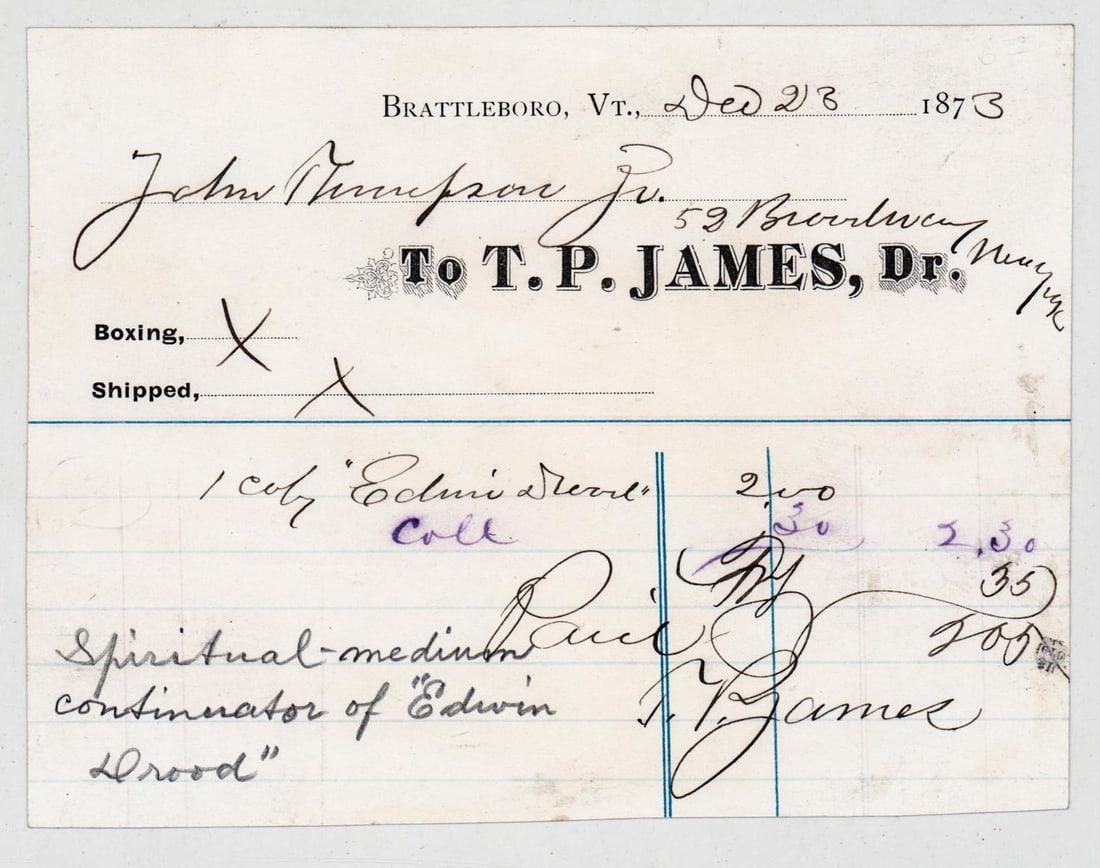 BRATTLEBORO, VT., Dec 23 1873
John Thompson Jr.
52 Broadway
New York
To T. P. JAMES, Dr.
Boxing, X
Shipped, X
1 copy "Edwin Drood" 2.00
Coll 30 2.30
35
Paid 205
T. P. James
Spiritual-medium
continuator of "Edwin
Drood"